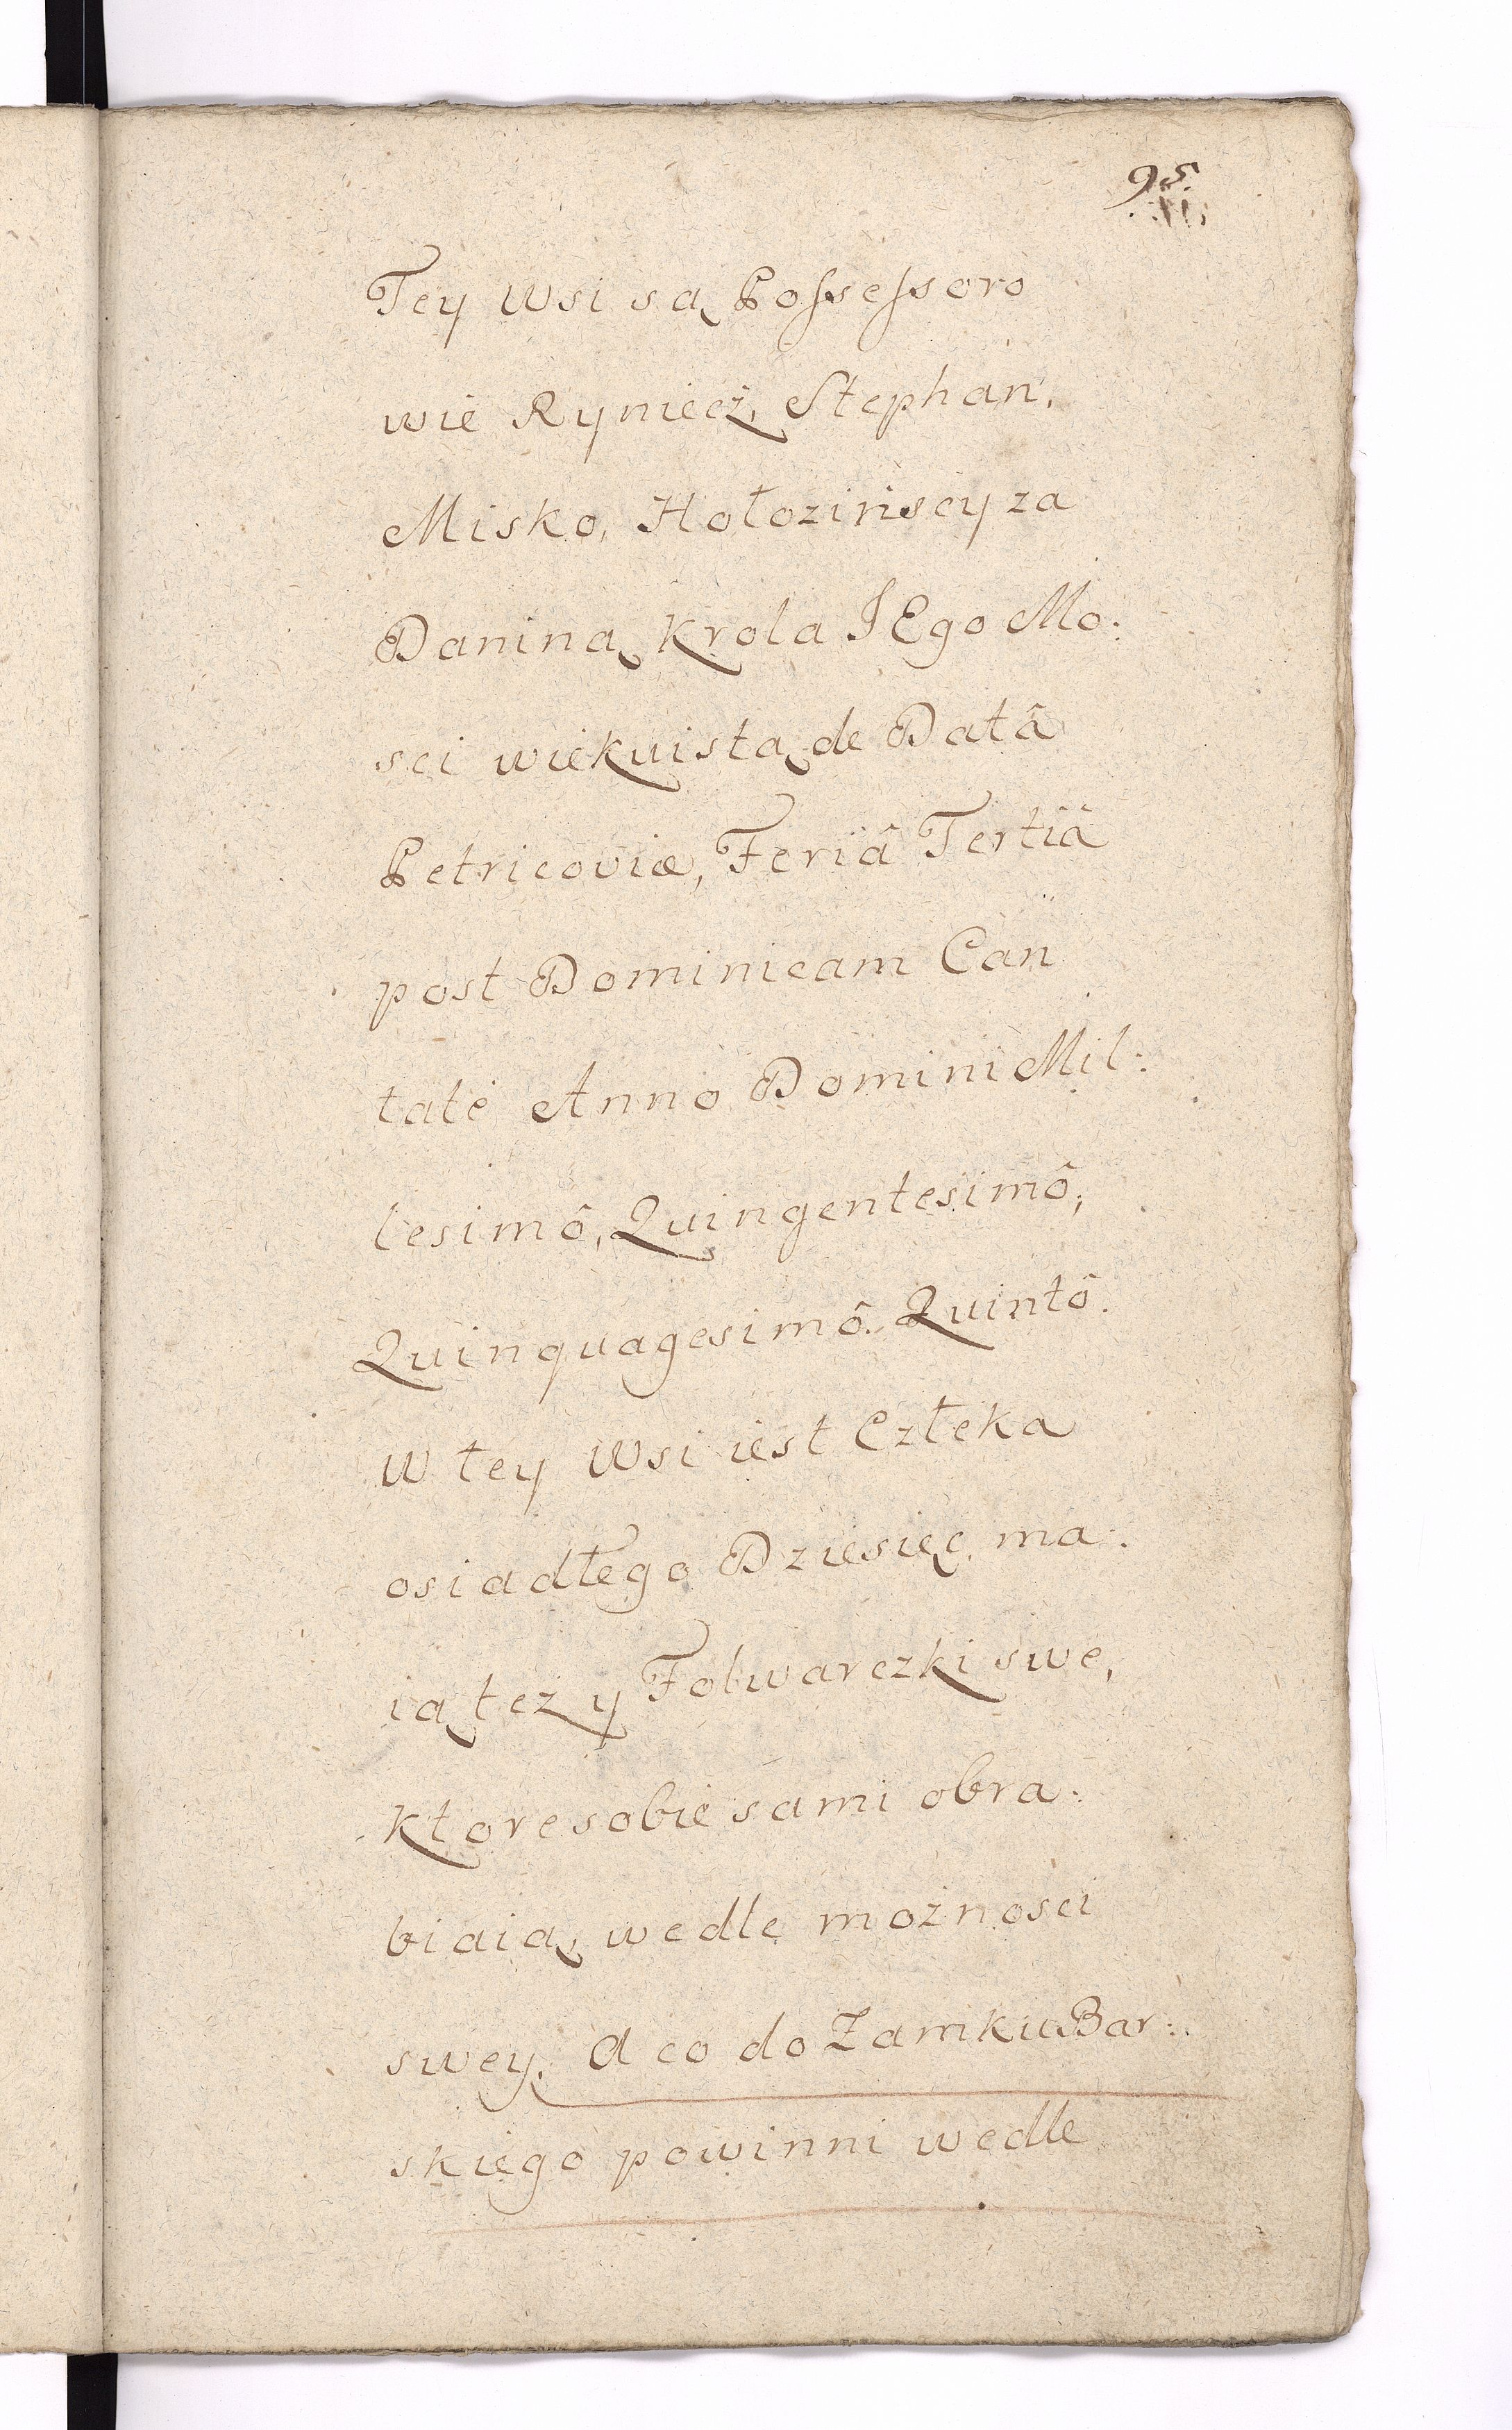 95.
Tey Wsi są Possessoro
wie Ryniecz, Stephan,
Misko, Hołozińscy za
Daniną Krola JEgo Mo:
sci wiekuistą de Datâ
Petricoviæ, Feriâ Tertiâ
post Dominicam Can
tate Anno Domini Mil:
lesimô, Quingentesimô,
Quinquagesimô. Quintô.
W tey Wsi iest Człeka
osiadłego Dziesięc, ma:
ią tez y Folwarczki swe,
Ktore sobie sami obra:
biaią, wedle możnosci
swey. A co do Zamku Bar:
skiego powinni wedle